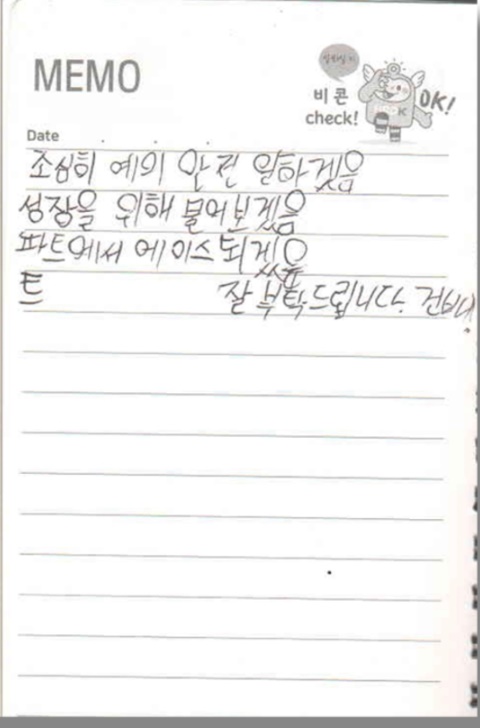 MEMO
비콘
check!
OK!
Date
조심히 예의 안전 일하겠음
성장을 위해 물어보겠음
파트에서 에이스 되겠음
트 잘 부탁드립니다.